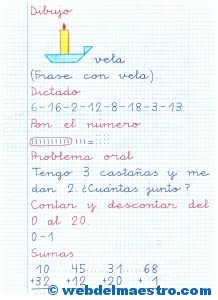 Dibujo
vela
(Frase con vela).
Dictado
6-16-2-12-8-18-3-13
Pon el número
Problema oral
Tengo 3 castañas y me
dan 2. ¿Cuántas junto?
Contar y descontar del
0 al 20.
0-1
Sumas
10 45 31 68
+32 +12 +20 + 1
© webdelmaestro.com